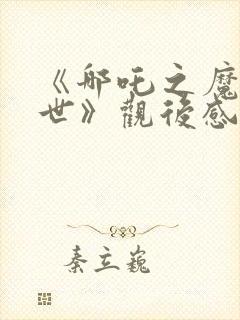 《哪吒之魔
世》觀後感
秦立巍